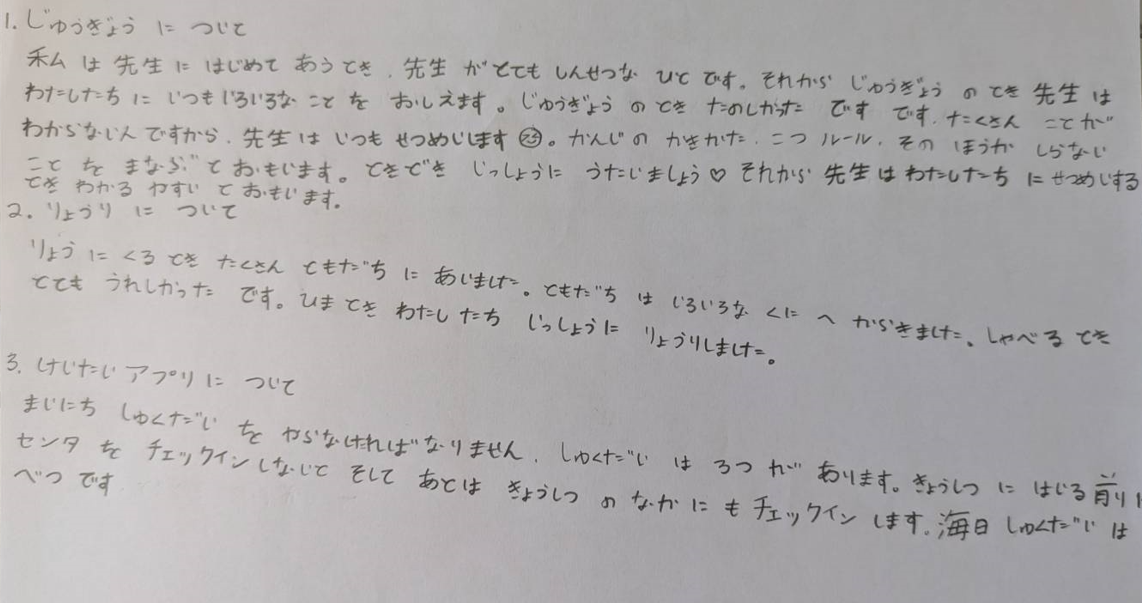 1. じゅうぎょう に ついて
私 は 先生 に はじめて あう とき、先生 が とても しんせつな ひと です。それから じゅうぎょう の とき 先生 は
わたしたち に いつも いろいろな こと を おしえます。じゅうぎょう の とき たのしかった です です、たくさん ことが
わからない人 ですから、先生 は いつも せつめいします。かんじ の かきかた、こつ ルール、その ほうが しらない
こと を まなぶ と おもいます。ときどき いっしょうに うたいましょう♡ それから 先生 は わたしたち に せつめいする
とき わかる やすい と おもいます。
2. りょうり に ついて
りょう に くる とき たくさん ともだち に あいました。ともだち は いろいろな くに へ からきました、しゃべる とき
とても うれしかった です。ひま とき わたしたち いっしょうに りょうりしました。
3. けいたい アプリ に ついて
まいにち しゅくだい を やらなければなりません、しゅくだい は 3つ が あります。きょうしつ に はいる 前り に
センタ を チェックイン しないと そして あとは きょうしつ の なか に も チェックイン します。海日 しゅくだい は
べつ です